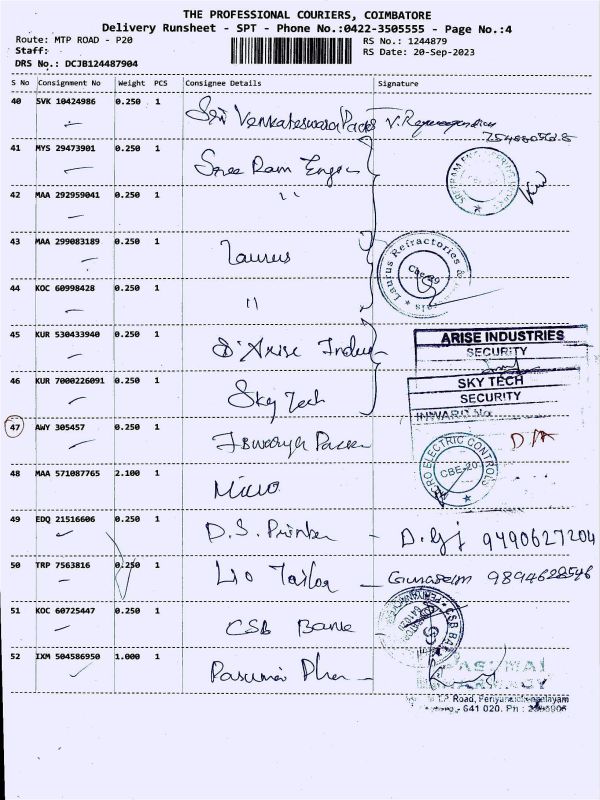 THE PROFESSIONAL COURIERS, COIMBATORE
Delivery Runsheet - SPT - Phone No.:0422-3505555 - Page No.:4
Route: MTP ROAD - P20
RS No.: 1244879
Staff:
RS Date: 20-Sep-2023
DRS No.: DCJB124487904
S No Consignment No Weight PCS Consignee Details Signature
40 SVK 10424986 0.250 1 Sri Venkateswara
41 MYS 29473901 0.250 1 Sree Ram Engg
42 MAA 292959041 0.250 1 "
43 MAA 299083189 0.250 1 Laurus Laurus Refractories &
Cbe-29
44 KOC 60998428 0.250 1 "
45 KUR 530433940 0.250 1 Arise ARISE INDUSTRIES
SECURITY
46 KUR 7000226091 0.250 1 Sky Tech SKY TECH
SECURITY
INWARD No
47 AWY 305457 0.250 1 D/A
48 MAA 571087765 2.100 1 Micro ELECTRIC CONTROLS
CBE-20
49 EDQ 21516606 0.250 1 D.S. Printer 9490627204
50 TRP 7563816 0.250 1 Lio Tailor 9894628546
51 KOC 60725447 0.250 1 CSB Bank CSB
52 IXM 504586950 1.000 1 Pasumai PASUMAI
PHARMACY
Road, Periyanaickenpalayam
641 020. Ph :